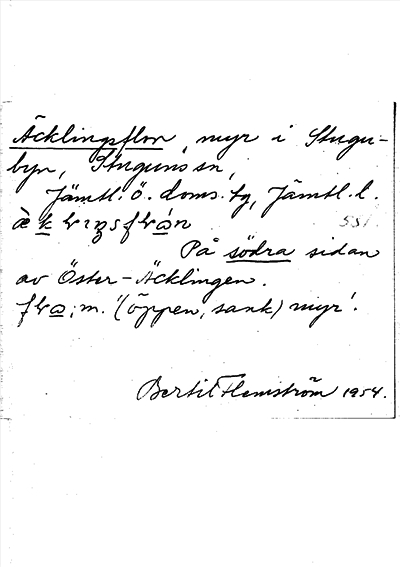 Äcklingsflon, myr i Stugu-
byn, Stuguns sn,
Jämtl. ö. doms. tg, Jämtl. l.
551
På södra sidan
av Öster-Äcklingen.
m. '(öppen, sank) myr'.
Bertil Flemström 1954.